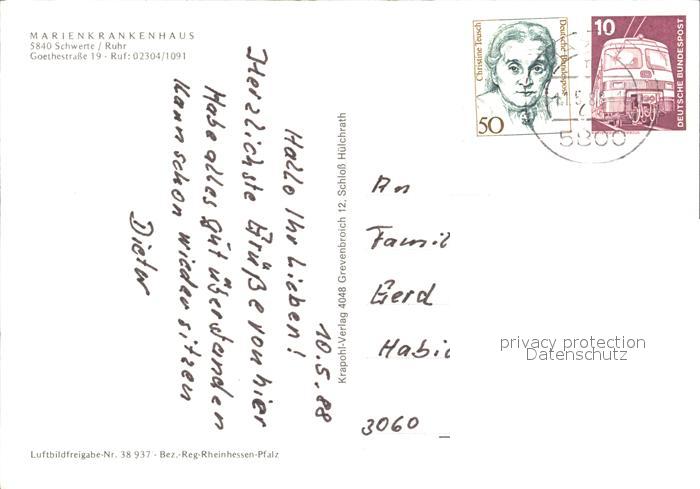 MARIENKRANKENHAUS
5840 Schwerte / Ruhr
Goethestraße 19 · Ruf: 02304/1091
10.5.88
Hallo Ihr Lieben!
Herzlichste Grüße von hier
Habe alles gut überstanden
Kann schon wieder sitzen
Dieter
Krapohl-Verlag 4048 Grevenbroich 12, Schloß Hülchrath
Christine Teusch
Deutsche Bundespost
50
10
DEUTSCHE BUNDESPOST
5800
An
Famil
Gerd
Habi
3060
privacy protection
Datenschutz
Luftbildfreigabe-Nr. 38 937 · Bez.-Reg-Rheinhessen-Pfalz